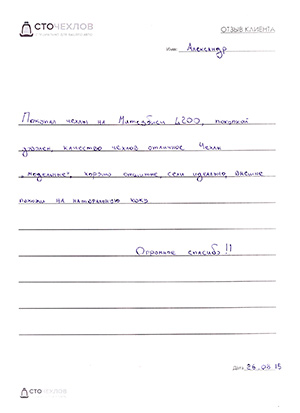 СТОЧЕХЛОВ
ОТЗЫВ КЛИЕНТА
Имя: Александр
Покупал чехлы на Митсубиси L200, покупкой
доволен, качество чехлов отличное Чехлы
"модельные", хорошо отшитые, сели идеально, внешне
похожи на натуральную кожу
Огромное спасибо!!
Дата 26.08.15
СТОЧЕХЛОВ